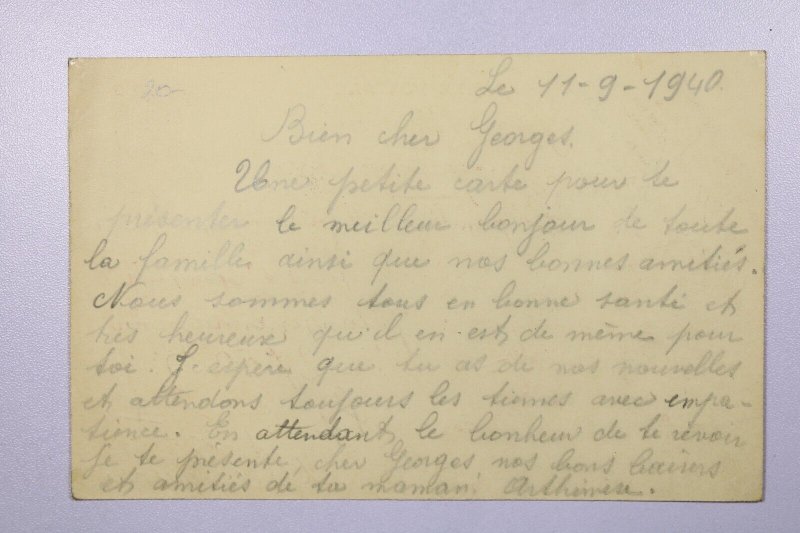 20
Le 11-9-1940.
Bien cher Georges.
Une petite carte pour te
présenter le meilleur bonjour de toute
la famille ainsi que nos bonnes amitiés.
Nous sommes tous en bonne santé et
très heureux qu'il en est de même pour
toi. J'espère que tu as de nos nouvelles
et attendons toujours les tiennes avec empa-
tience. En attendant, le bonheur de te revoir
je te présente, cher Georges, nos bons baisers
et amitiés de ta maman.